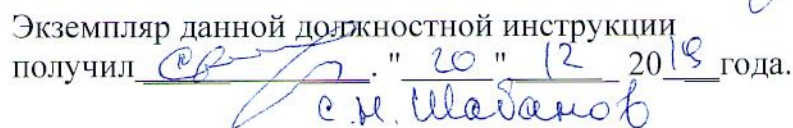 Экземпляр данной должностной инструкции
получил . "20" 12 2019 года.
С.Н. Шабанов